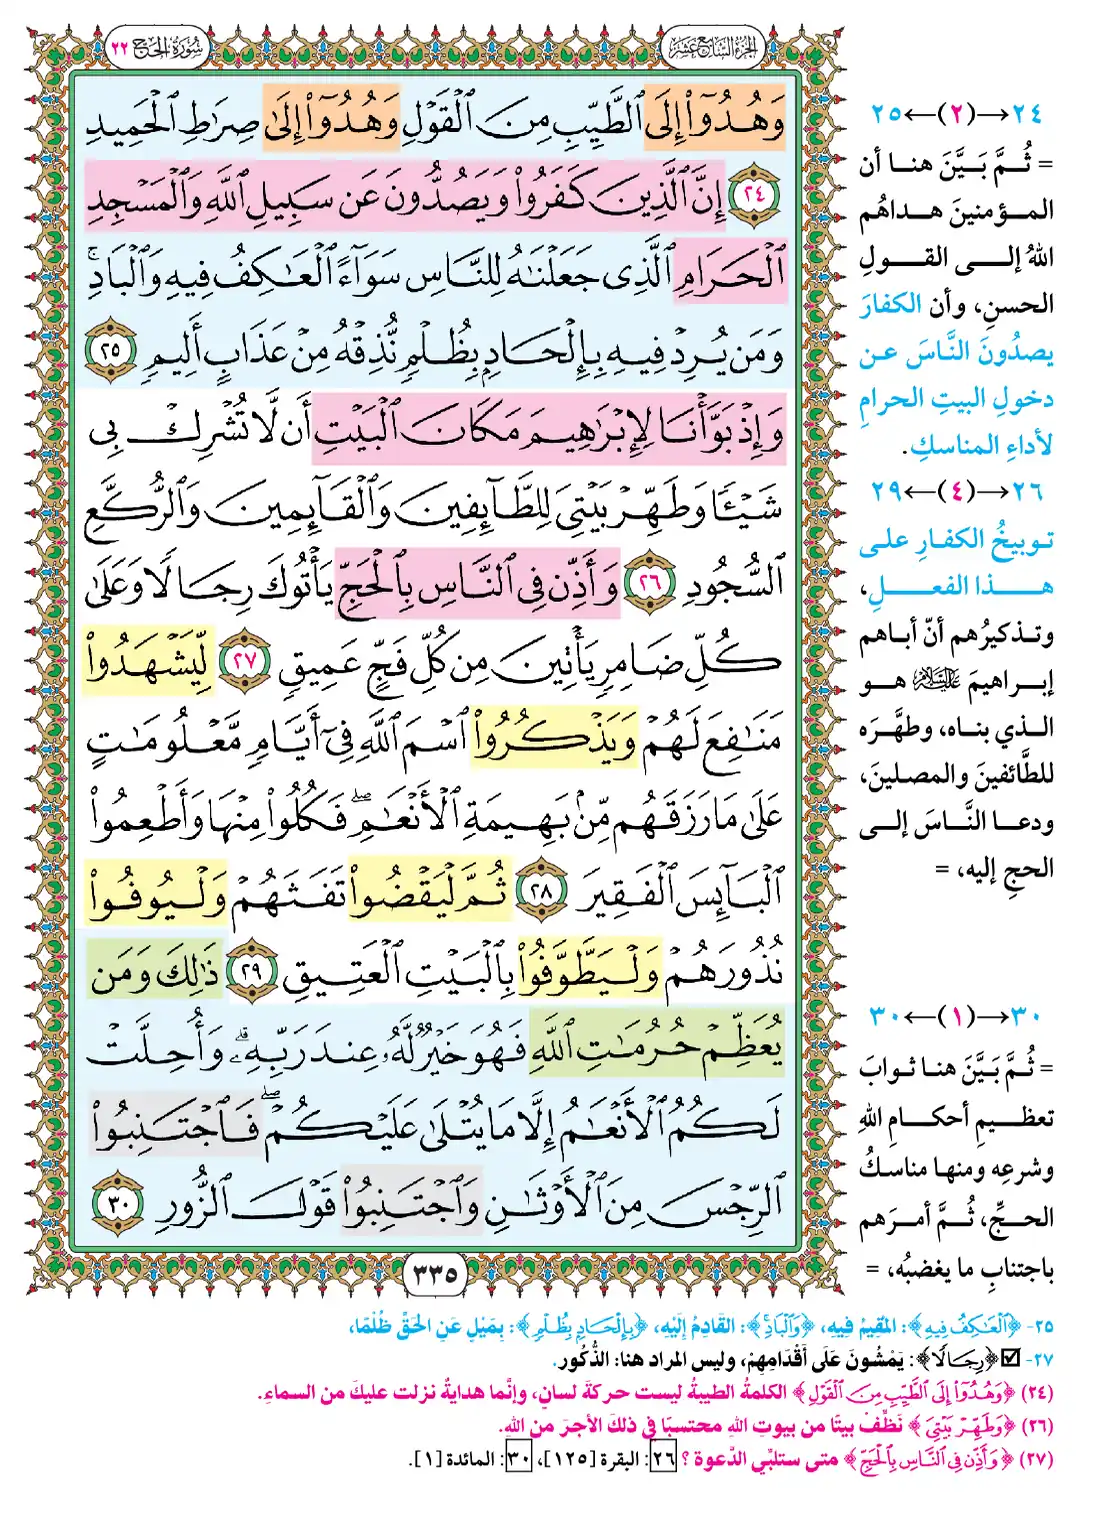 الجزء السابع عشر
سورة الحج ٢٢
وَهُدُوٓا۟ إِلَى ٱلطَّيِّبِ مِنَ ٱلْقَوْلِ وَهُدُوٓا۟ إِلَىٰ صِرَٰطِ ٱلْحَمِيدِ
٢٤ إِنَّ ٱلَّذِينَ كَفَرُوا۟ وَيَصُدُّونَ عَن سَبِيلِ ٱللَّهِ وَٱلْمَسْجِدِ
ٱلْحَرَامِ ٱلَّذِى جَعَلْنَٰهُ لِلنَّاسِ سَوَآءً ٱلْعَٰكِفُ فِيهِ وَٱلْبَادِ ۚ
وَمَن يُرِدْ فِيهِ بِإِلْحَادٍۭ بِظُلْمٍ نُّذِقْهُ مِنْ عَذَابٍ أَلِيمٍ ٢٥
وَإِذْ بَوَّأْنَا لِإِبْرَٰهِيمَ مَكَانَ ٱلْبَيْتِ أَن لَّا تُشْرِكْ بِى
شَيْـًٔا وَطَهِّرْ بَيْتِىَ لِلطَّآئِفِينَ وَٱلْقَآئِمِينَ وَٱلرُّكَّعِ
ٱلسُّجُودِ ٢٦ وَأَذِّن فِى ٱلنَّاسِ بِٱلْحَجِّ يَأْتُوكَ رِجَالًا وَعَلَىٰ
كُلِّ ضَامِرٍ يَأْتِينَ مِن كُلِّ فَجٍّ عَمِيقٍ ٢٧ لِّيَشْهَدُوا۟
مَنَٰفِعَ لَهُمْ وَيَذْكُرُوا۟ ٱسْمَ ٱللَّهِ فِىٓ أَيَّامٍ مَّعْلُومَٰتٍ
عَلَىٰ مَا رَزَقَهُم مِّنۢ بَهِيمَةِ ٱلْأَنْعَٰمِ ۖ فَكُلُوا۟ مِنْهَا وَأَطْعِمُوا۟
ٱلْبَآئِسَ ٱلْفَقِيرَ ٢٨ ثُمَّ لْيَقْضُوا۟ تَفَثَهُمْ وَلْيُوفُوا۟
نُذُورَهُمْ وَلْيَطَّوَّفُوا۟ بِٱلْبَيْتِ ٱلْعَتِيقِ ٢٩ ذَٰلِكَ وَمَن
يُعَظِّمْ حُرُمَٰتِ ٱللَّهِ فَهُوَ خَيْرٌ لَّهُۥ عِندَ رَبِّهِۦ ۗ وَأُحِلَّتْ
لَكُمُ ٱلْأَنْعَٰمُ إِلَّا مَا يُتْلَىٰ عَلَيْكُمْ ۖ فَٱجْتَنِبُوا۟
ٱلرِّجْسَ مِنَ ٱلْأَوْثَٰنِ وَٱجْتَنِبُوا۟ قَوْلَ ٱلزُّورِ ٣٠
٣٣٥
٢٤→(٢)←٢٥
= ثُمَّ بَيَّنَ هنا أن
المؤمنينَ هداهُم
اللهُ إلى القولِ
الحسنِ، وأن الكفارَ
يصدُونَ النَّاسَ عن
دخولِ البيتِ الحرامِ
لأداءِ المناسكِ.
٢٦→(٤)←٢٩
توبيخُ الكفارِ على
هذا الفعلِ،
وتذكيرُهم أنّ أباهم
إبراهيمَ عليه السلام هو
الذي بناه، وطهَّرَه
للطَّائفينَ والمصلينَ،
ودعا النَّاسَ إلى
الحجِ إليه، =
٣٠→(١)←٣٠
= ثُمَّ بَيَّنَ هنا ثوابَ
تعظيمِ أحكامِ اللهِ
وشرعِه ومنها مناسكُ
الحجِّ، ثُمَّ أمرَهم
باجتنابِ ما يغضبُه، =
٢٥- ﴿ٱلْعَٰكِفُ فِيهِ﴾: المُقِيمُ فِيهِ، ﴿وَٱلْبَادِ﴾: القَادِمُ إِلَيْهِ، ﴿بِإِلْحَادٍۭ بِظُلْمٍ﴾: بِمَيْلٍ عَنِ الحَقِّ ظُلْمًا،
٢٧- ☑ ﴿رِجَالًا﴾: يَمْشُونَ عَلَى أَقْدَامِهِمْ، وليس المراد هنا: الذُّكُور.
(٢٤) ﴿وَهُدُوٓا۟ إِلَى ٱلطَّيِّبِ مِنَ ٱلْقَوْلِ﴾ الكلمةُ الطيبةُ ليست حركةَ لسانٍ، وإنَّما هدايةٌ نزلت عليكَ من السماءِ.
(٢٦) ﴿وَطَهِّرْ بَيْتِىَ﴾ نَظِّفْ بيتًا من بيوتِ اللهِ محتسبًا في ذلكَ الأجرَ من اللهِ.
(٢٧) ﴿وَأَذِّن فِى ٱلنَّاسِ بِٱلْحَجِّ﴾ متى ستلبِّي الدَّعوة ؟ ٢٦: البقرة [١٢٥]، ٣٠: المائدة [١].